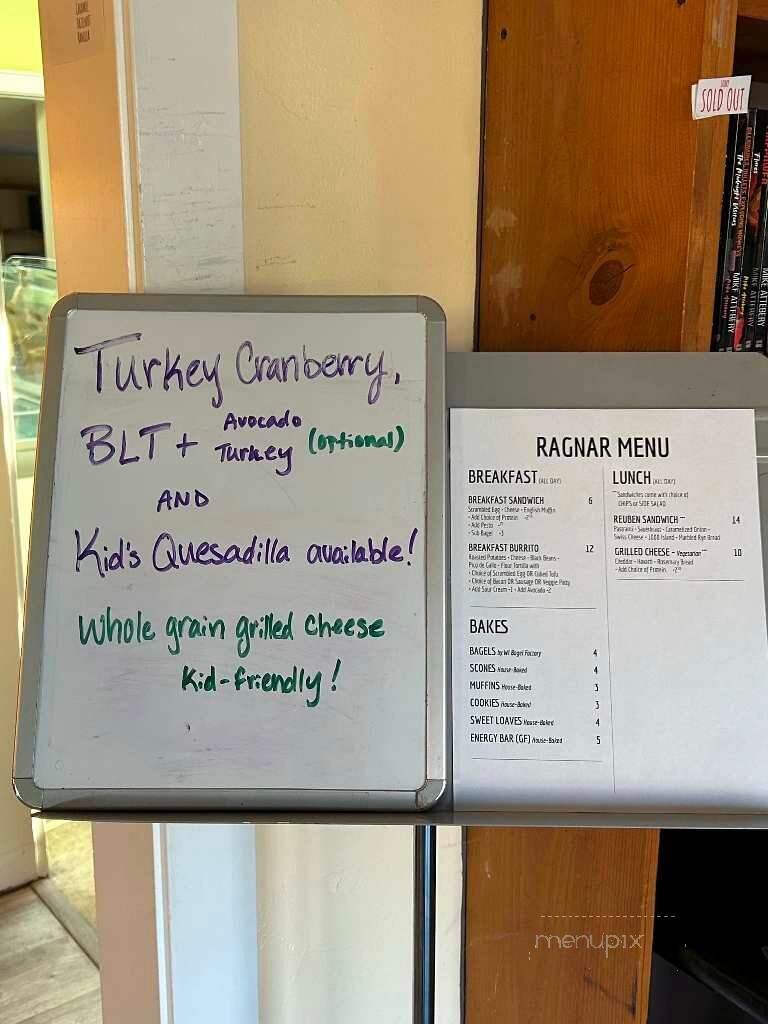 Turkey Cranberry,
BLT + Avocado Turkey (optional)
AND
Kid's Quesadilla available!
Whole grain grilled cheese
Kid-friendly!
SOLD OUT
RAGNAR MENU
BREAKFAST (ALL DAY)
BREAKFAST SANDWICH 6
Scrambled Egg - Cheese - English Muffin
- Add Choice of Protein
- Add Pesto
- Sub Bagel
BREAKFAST BURRITO 12
Roasted Potatoes - Cheese - Black Beans -
Pico de Gallo - Flour Tortilla with
- Choice of Scrambled Egg OR Cubed Tofu
- Choice of Bacon OR Sausage OR Veggie Patty
- Add Sour Cream +1 - Add Avocado +2
BAKES
BAGELS by WI Bagel Factory 4
SCONES House-Baked 4
MUFFINS House-Baked 3
COOKIES House-Baked 3
SWEET LOAVES House-Baked 4
ENERGY BAR (GF) House-Baked 5
LUNCH (ALL DAY)
Sandwiches come with choice of
CHIPS or SIDE SALAD
REUBEN SANDWICH 14
Pastrami - Sauerkraut - Caramelized Onion -
Swiss Cheese - 1000 Island - Marbled Rye Bread
GRILLED CHEESE - Vegetarian 10
Cheddar - Havarti - Rosemary Bread
- Add Choice of Protein
MIKE ATTEBERY
MIKE ATTEBERY
menupix